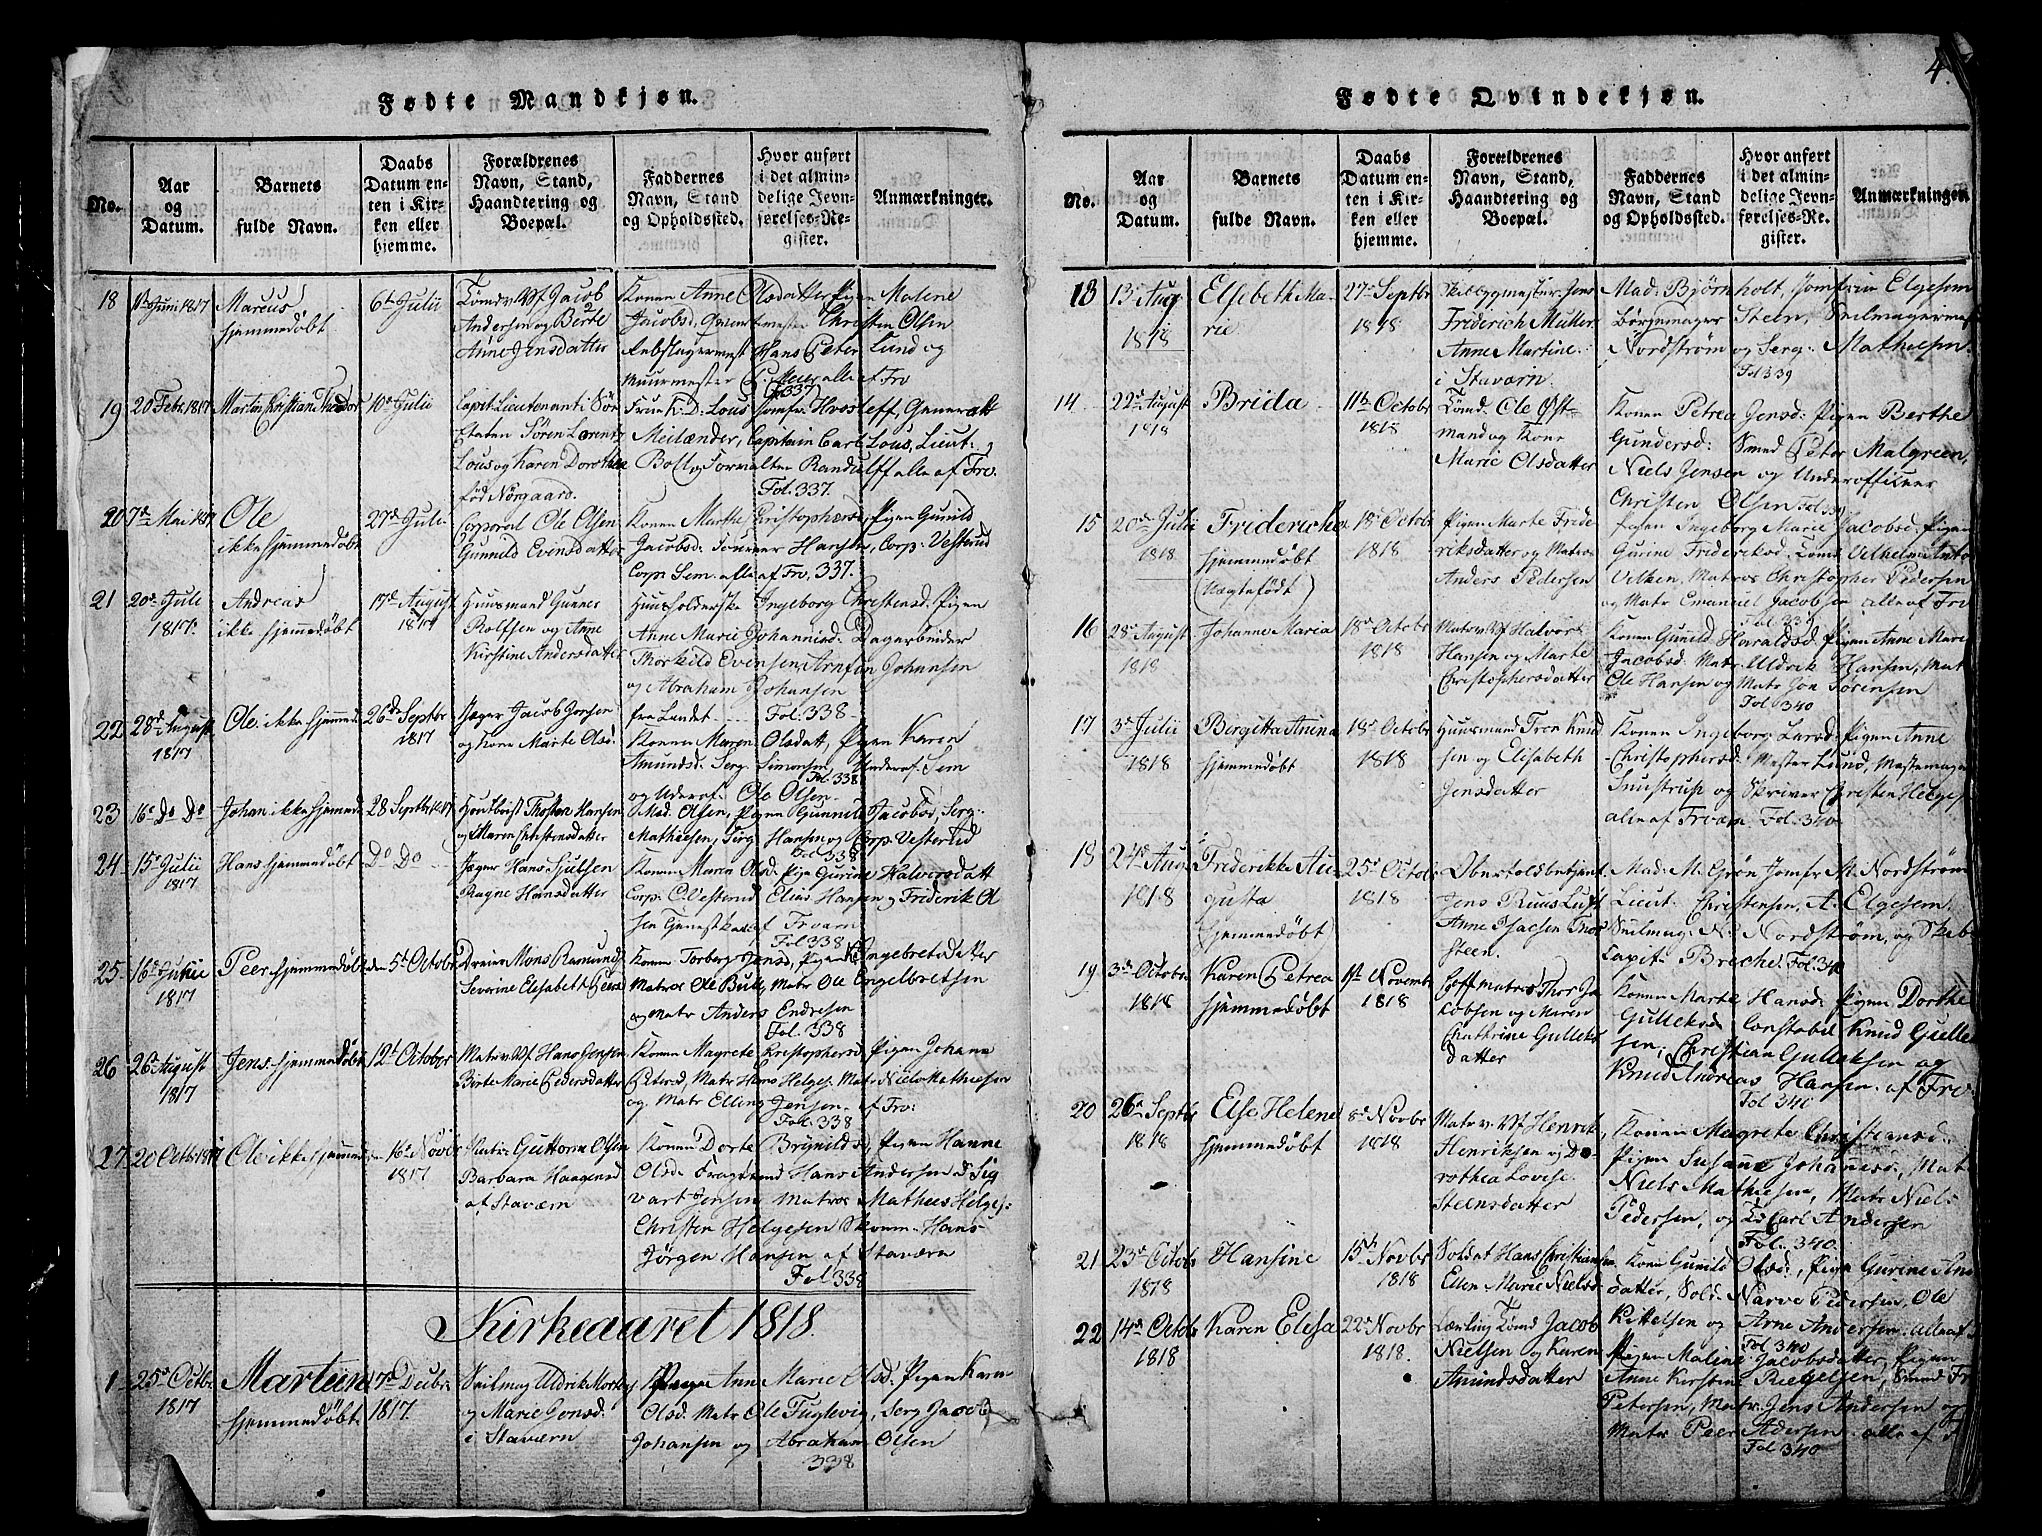 4.
Fødte Mandkjøn.
No.
Aar
og
Datum.
Barnets
fulde Navn.
Daabs
Datum en-
ten i Kir-
ken eller
hjemme.
Forældrenes
Navn, Stand,
Haandtering og
Boepæl.
Faddernes
Navn, Stand
og Opholdssted.
Hvor anført
i det almin-
delige Jevn-
førelses-Re-
gister.
Anmærkninger.
18
11te Juni 1817
Marcus
hjemmedøbt
6te Julii
Tømdr. Jacob
Andersen og Berte
Anne Jensdatter
Konen Anne Olsdatter Pigen Malene
Jacobsd. Qvartermester Christen Olsen
Rebslagermest Hans Peter Lund og
Muurmester alle af Frv
Fol 337
19
20 Febr. 1817
Martin Christian Theodor
10de Julii
Capit. Lieutenant i Sør
Etaten Sören Lorentz
Lous og Karen Dorothea
fød Nörgaard.
Frue K. D. Lous Jomfr. Hvosleff, Generalkt
Meilænder, Capitain Carl Lous, Lieut:
Boll og Formalter Randulff alle af Frv.
Fol. 337.
20
7de Mai 1817
Ole
ikke hjemmedøbt
27de Julii
Corporal Ole Olsen
Gunnild Evensdatter
Konen Marthe Christophersd. Pigen Gunild
Jacobsd. Hansen, Corp. Vesterud
Corp. Sem. alle af Frv, 337.
21
20de Juli
1817.
Andreas
ikke hjemmedøbt
17de August
1817
Huusmand Gunner
Rolfsen og Anne
Kirstine Andersdatter
Huusholderske Ingeborg Christensd. Pigen
Anne Marie Johannisd. Dagarbeider
Thorkild Evensen, Arnsen Johansen
og Abraham Johansen
fra Landet Fol. 338
22
28de August
1817
Ole ikke hjemmed
26de Septbr
1817
Jæger Jacob Jensen
og Kone Marte Olsd.
Konen Maren Olsdatt, Pigen Karen
Amundsd. Serg. Simonsen, Underof. Sem
og Underof. Ole Olsen
Fol. 338
23
16de Do Do
Johan ikke hjemmed
28 Septbr 1817
Hans Thosten Hansen
og Maren Christensdatter
Mad. Olsen, Pigen Gunnild Jacobsd, Serg.
Mathiesen, Serg Hansen og Corp. Vesterud
Fol 338
24
15de Julii
1817
Hans hjemmedøbt
Do Do
Jæger Hans Hjulsen
Ragne Hansdatter
Konen Maren Olsd. Pige Gurine Halvorsdatt
Corp. C. Vesterud Elias Hansen og Friderik Ol
sen af Frværn
Fol 338
25
16de Julii
1817
Peer hjemmedøbt
den 5te October
Dreier Mons Rasmuds
Severine Elisabeth Peers
Konen Torbergs Jensd, Pigen K. Ingebretsdatter
Matros Ole Bull, Matr Ole Engelbretsen
og Matr Anders Endresen
Fol. 338
26
26de August
1817
Jens hjemmedøbt
12te October
Matr. v. Vf Hans Jensen
Birte Marie Pedersdatter
Konen Magrete Christophersd Pigen Johane
Petersd, Matr Hans Helges. Matr Niels Mathiesen
og Matr Elling Jensen af Frv.
Fol. 338
27
20 Octbr 1817
Ole ikke hjemmed
16de Novbr
1817
Matros Guttorm Olsen
Barbara Haagensd
af Staværn
Konen Dorte Brynildsd, Pigen Hanne
Olsd. Hans Andersen & Sig
vart Jensen Matros Mathies Helges:
Christen Helgesen Skomm. Hans
Jörgen Hansen af Staværn
Fol. 338
Kirkeaaret 1818.
1
25de Octbr
1817
Martin
hjemmedøbt
7de Decbr
1817.
Seilmag Uldrik Morten
og Marie Jensd.
i Staværn
Pigen Ann Marie Olsd. Pigen Karn
Olsd. Matr Ole Fuglevig, Serg Jacob
Johansen og Abraham Olsen
338
Fødte Qvindekjøn.
No.
Aar
og
Datum.
Barnets
fulde Navn.
Daabs
Datum en-
ten i Kir-
ken eller
hjemme.
Forældrenes
Navn, Stand,
Haandtering og
Boepæl.
Faddernes
Navn, Stand
og Opholdssted.
Hvor anført
i det almin-
delige Jevn-
førelses-Re-
gister.
Anmærkningen
13
13de Aug
1818
Elsebeth Ma-
rie
27de Septbr
1818
Skibbygmester Jens
Friderich Müller
Anne Martine
i Staværn.
Mad: Björnholt, Jomfrue Elgesem
Börgemager Steen, Seilmagermes
Nordström og Serg: Mathesen.
Fol 339
14
22de August
1818
Brida
11te Octobr
1818
Tømd: Ole Øst-
mand og Kone
Marie Olsdatter
Konen Petrea Jensd: Pigen Berthe
Gundersd: Smed Peter Malgreen,
Niels Jensen og Underofficeer
Christen Olsen Fol 339
15
20de Julii
1818
Friderich
hjemmedøbt
(Uægtefødt)
18de Octobr
1818
Pigen Marte Fride
riksdatter og Matros
Anders Pedersen
Pigen Ingeborg Marie Jacobsd, Pigen
Gurine Frideriksd. Tømd. Vilhelm Anto
Velken, Matros Christopher Pedersen
og Matr Emanuel Jacobsen alle af Frv
Fol 339
16
28de August
1818
Johanne Maria
18de Octobr
1818
Matr. v. Vf Halvor
Hansen og Marte
Christophersdatter
Konen Gunild Haraldsd. Pigen Anne Marie
Jacobsd. Matr Uldrik Hansen, Mat
Ole Hansen og Matr Jon Sörensen
Fol 340
17
3de Julii
1818
Bergitta Anina
hjemmedøbt
18de Octobr
1818
Huusmand Tron Knud
sen og Elisabeth
Jensdatter
Konen Ingeborg Larsd: Pigen Anne
Christophersd. Mester Lund, Mestermager
Snustrup og Skriver Christen Helges
alle af Frværn. Fol. 340.
18
24de Aug
1818
Friderikke Au-
gusta
hjemmedøbt
25de Octobr
1818
Obertoldbetjent
Jens Ruus Luft
Anne Isacsen Thor
Steen.
Mad: M. Grön Jomfr M. Nordström
Lieut. Christensen, A. Elgesem
Seilmag. N. Nordström, og Skibs
Capit. Breche. Fol. 340
19
3de Octobr
1818
Karen Petrea
hjemmedøbt
1te Novemb
1818
Coffmatros Thor Ja
cobsen og Maren
Cathrine Gulleks
datter
Konen Marte Hansd. Pigen Dorthe
Gulleksd Constabel Knud Gulle
sen, Christian Gulleksen og
Knud Andreas Hansen. af Frv.
Fol 340
20
26de Septbr
1818
Else Helene
hjemmedøbt
8de Novbr
1818
Matr v. Vf Henrik
Henriksen og Do-
rothea Lovise
Steensdatter
Konen Magrete Christiansd.
Pigen Susanne Johanesd, Mat
Niels Mathiesen, Matr Niels
Pedersen, og Carl Andersen
Fol. 340.
21
23de Octobr
1818
Hansine
15de Novbr
1818
Soldat Hans Christiansen
Ellen Marie Nielsd.
Konen Gunild Olsd:, Pigen Gurine Ans
datter, Sold. Narve Pedersen, Ole
Kittelsen og Arne Andersen. alle af
Fol 340
22
14de Octobr
1818
Karen Elesa
22de Novbr
1818.
Lærling Tømd Jacob
Nielsen og Karen
Amundsdatter
Pigen Maline Jacobsdatter, Pigen
Anne Kirstine Riegelsen, Smed Fr
Petersen, Matr. Jens Andersen og
Matr Peer Andersen. alle af F
Fol 340